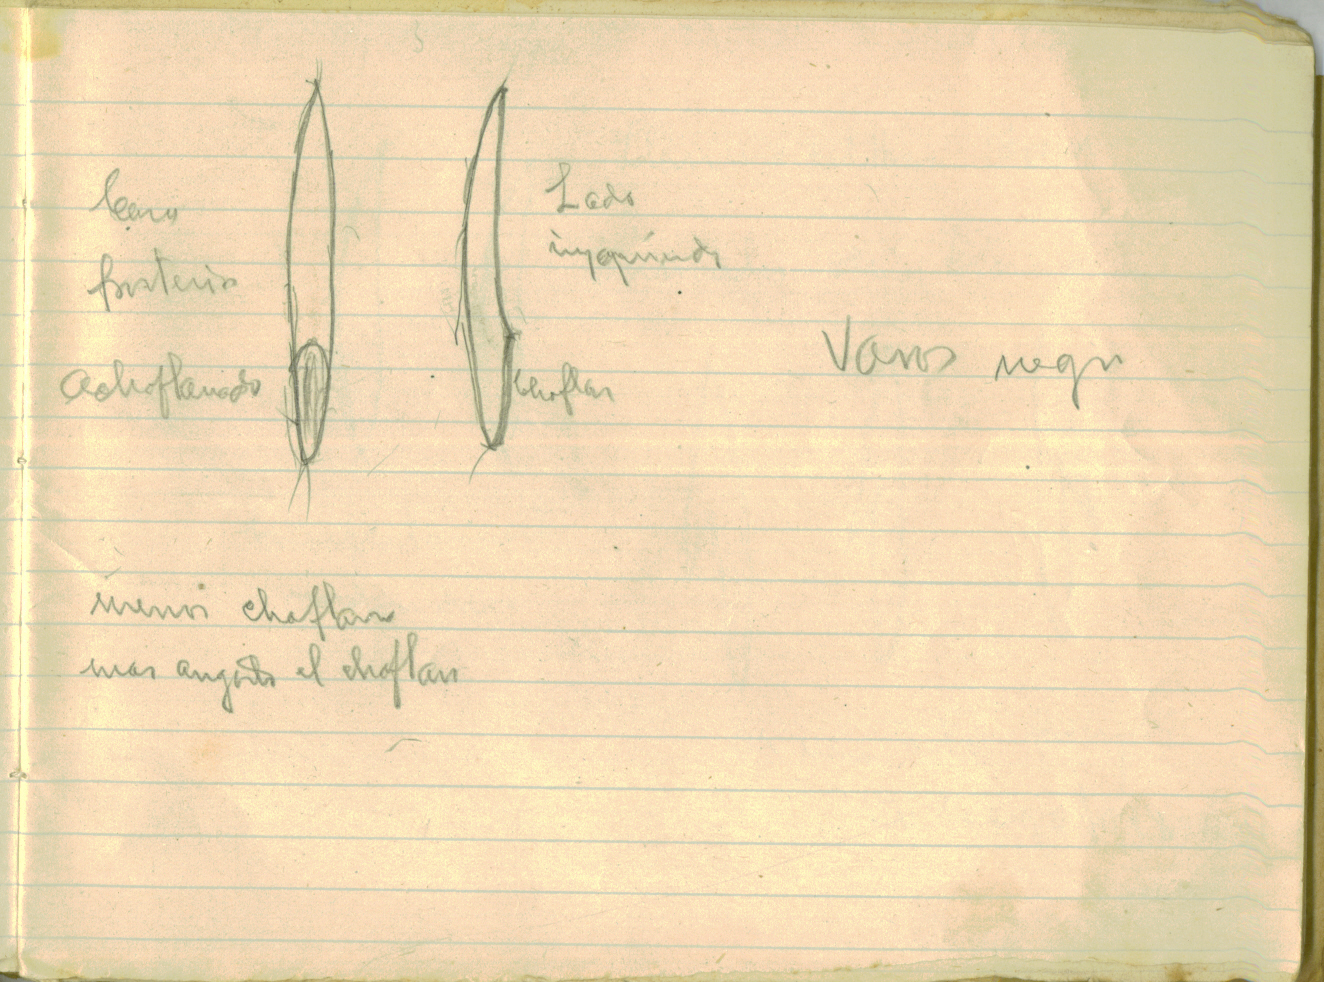 Cara
posterior
Achaflanado
Lado
izquierdo
chaflan
Vasos negr
menos chaflan
mas angosto el chaflan